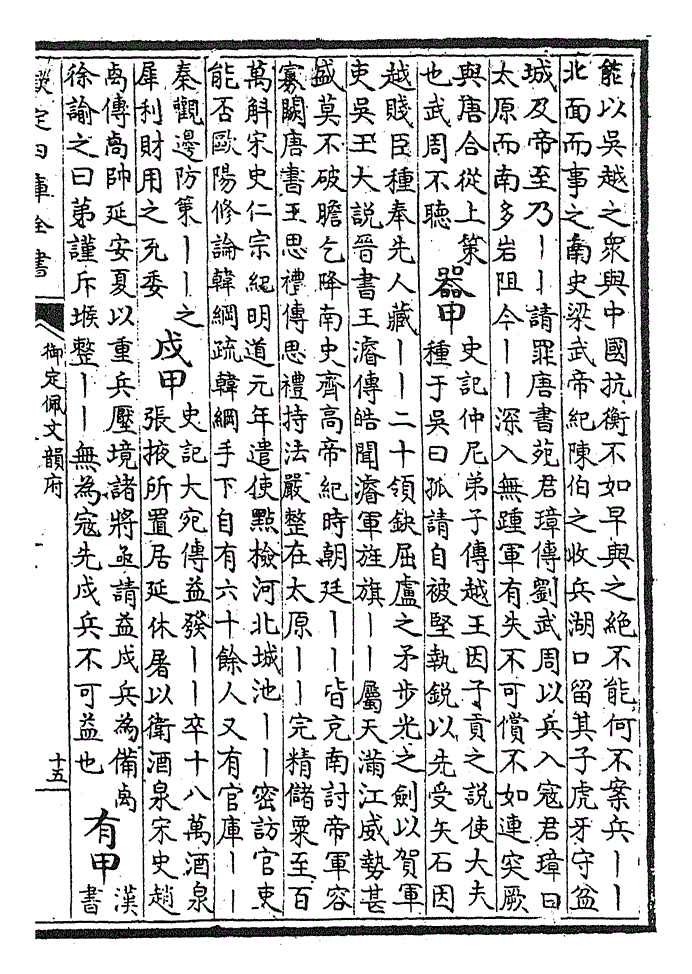 能以吳越之衆與中國抗衡不如早與之絶不能何不案兵丨丨
北面而事之南史梁武帝紀陳伯之收兵湖口留其子虎牙守盆
城及帝至乃丨丨請罪唐書苑君璋傳劉武周以兵入寇君璋曰
太原而南多岩阻今丨丨深入無踵軍有失不可償不如連突厥
與唐合從上策
也武周不聽
器甲
史記仲尼弟子傳越王因子貢之説使大夫
種于吳曰孤請自被堅執鋭以先受矢石因
越賤臣種奉先人藏丨丨二十領鈌屈盧之矛步光之劍以賀軍
吏吳王大説晉書王濬傳皓聞濬軍旌旗丨丨屬天滿江威勢甚
盛莫不破膽乞降南史齊高帝紀時朝廷丨丨皆充南討帝軍容
寡闕唐書王思禮傳思禮持法嚴整在太原丨丨完精儲粟至百
萬斛宋史仁宗紀明道元年遣使㸃檢河北城池丨丨密訪官吏
能否歐陽修論韓綱疏韓綱手下自有六十餘人又有官庫丨丨
秦觀邊防策丨丨之
犀利財用之死委
戍甲
史記大宛傳益發丨丨卒十八萬酒泉
張掖所置居延休屠以衛酒泉宋史趙
卨傳卨帥延安夏以重兵壓境諸將亟請益戍兵為備卨
徐諭之曰弟謹斥堠整丨丨無為寇先戍兵不可益也
有甲
漢
書
欽定四庫全書
御定佩文韻府
十五